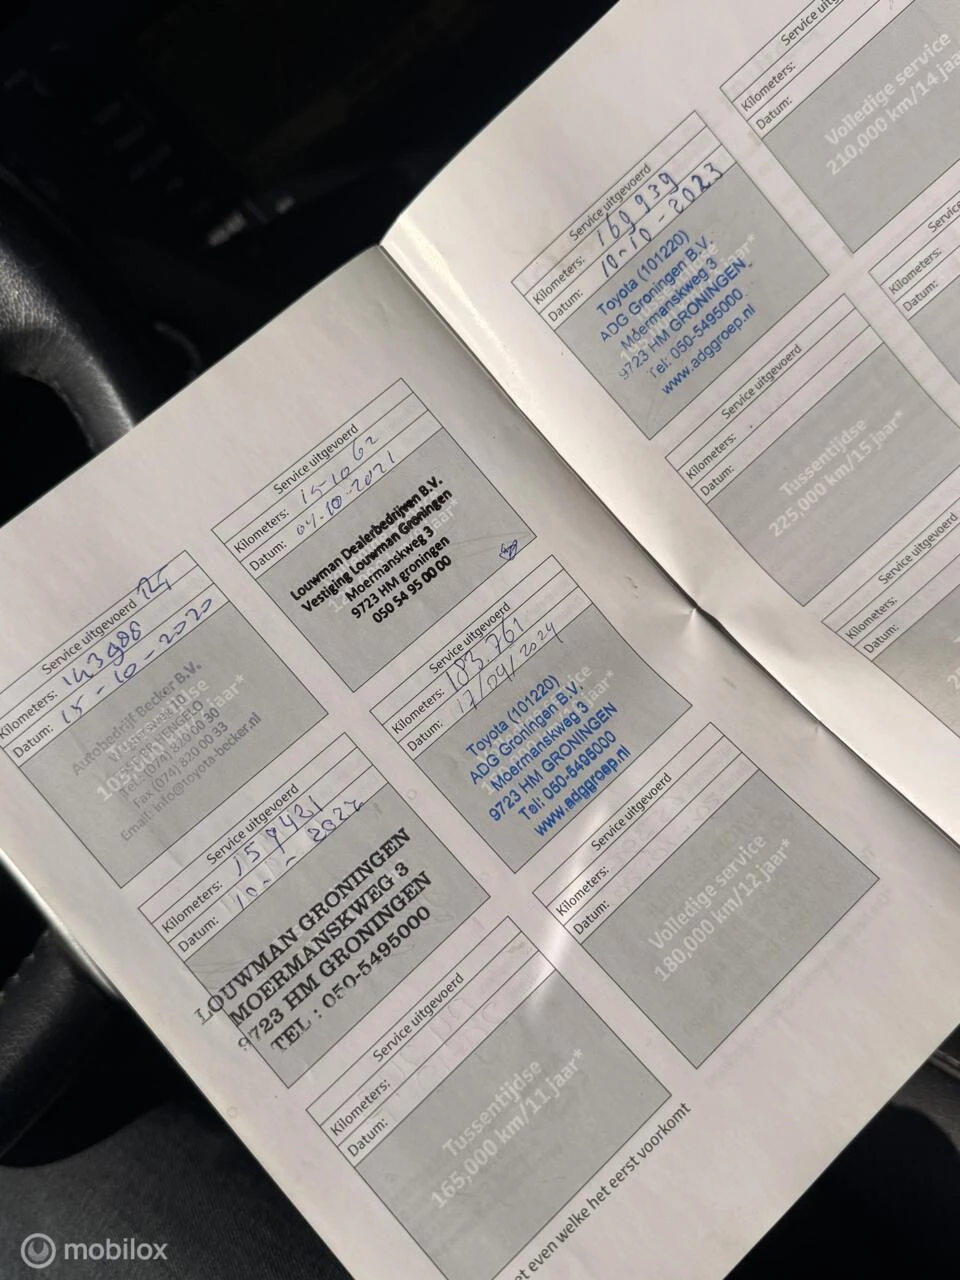 Service uitgevoerd
Kilometers: 143988
Datum: 15-10-2020
Autobedrijf Becker B.V.
Tel: (074) 820 00 30
Fax (074) 820 00 33
Email: info@toyota-becker.nl
Service uitgevoerd
Kilometers: 157431
Datum: 10-10-2022
LOUWMAN GRONINGEN
MOERMANSKWEG 3
9723 HM GRONINGEN
TEL : 050-5495000
Service uitgevoerd
Kilometers:
Datum:
Tussentijdse
165,000 km/11 jaar*
Service uitgevoerd
Kilometers: 15-1062
Datum: 04-10-2021
Louwman Dealerbedrijven B.V.
Vestiging Louwman Groningen
Moermanskweg 3
9723 HM groningen
050 54 95 00 00
Service uitgevoerd
Kilometers: 183.761
Datum: 17/09/2024
Toyota (101220)
ADG Groningen B.V.
Moermanskweg 3
9723 HM GRONINGEN
Tel: 050-5495000
www.adggroep.nl
Service uitgevoerd
Kilometers:
Datum:
Volledige service
180,000 km/12 jaar*
et even welke het eerst voorkomt
Service uitgevoerd
Kilometers: 169939
Datum: 10-10-2023
Toyota (101220)
ADG Groningen B.V.
Moermanskweg 3
9723 HM GRONINGEN
Tel: 050-5495000
www.adggroep.nl
Service uitgevoerd
Kilometers:
Datum:
Tussentijdse
225,000 km/15 jaar*
Service uitgevoerd
Kilometers:
Datum:
Service
Kilometers:
Datum:
Volledige service
210,000 km/14 jaar
mobilox